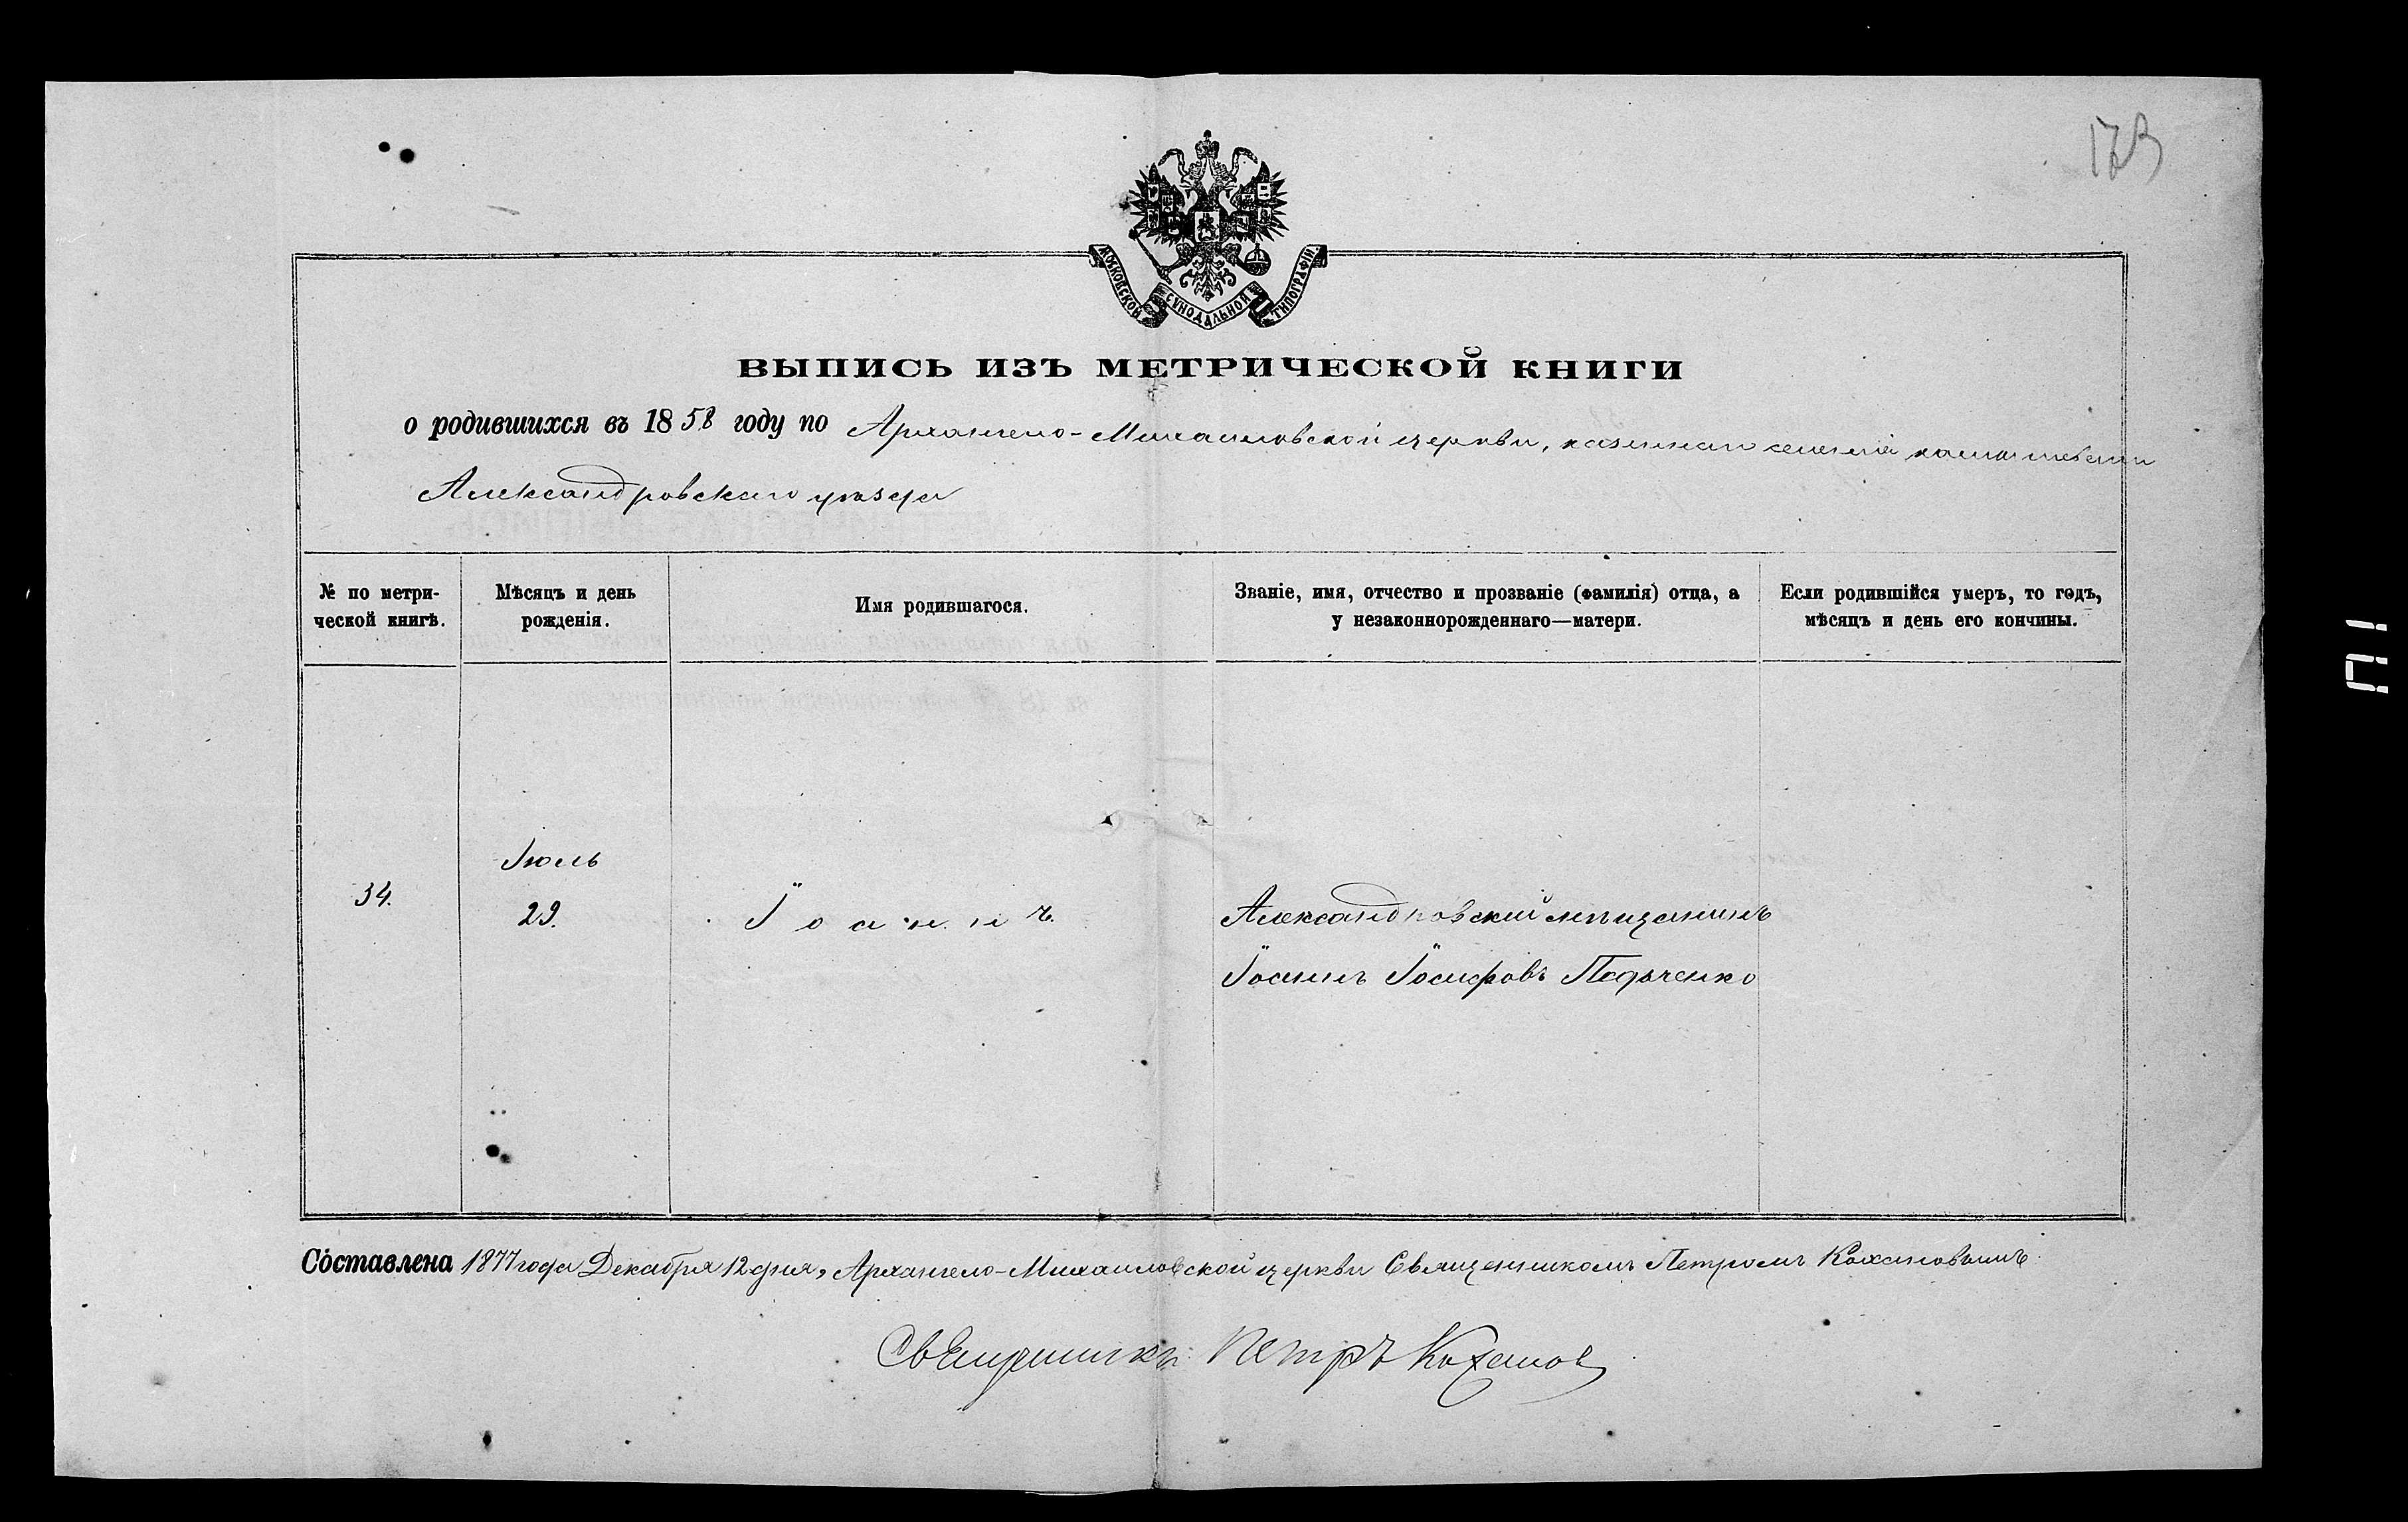 173
МОСКОВСКОЙ СѴНОДАЛЬНОЙ ТИПОГРАФІИ
ВЫПИСЬ ИЗЪ МЕТРИЧЕСКОЙ КНИГИ
о родившихся въ 1858 году по Архангело-Михаиловской церкви, казеннаго селенія
Александровскаго уѣзда
№ по метри-
ческой книгѣ.
Мѣсяцъ и день
рожденія.
Имя родившагося.
Званіе, имя, отчество и прозваніе (фамилія) отца, а
у незаконнорожденнаго—матери.
Если родившійся умеръ, то годъ,
мѣсяцъ и день его кончины.
34.
Іюль
29.
Іоаннъ.
Александровскій мѣщанинъ
Іоаннъ Іосифовъ Педьченко
Составлена 1877 года Декабря 12 дня, Архангело-Михаиловской церкви Священникомъ Петромъ Кохановымъ
Священникъ Петръ Кохановъ